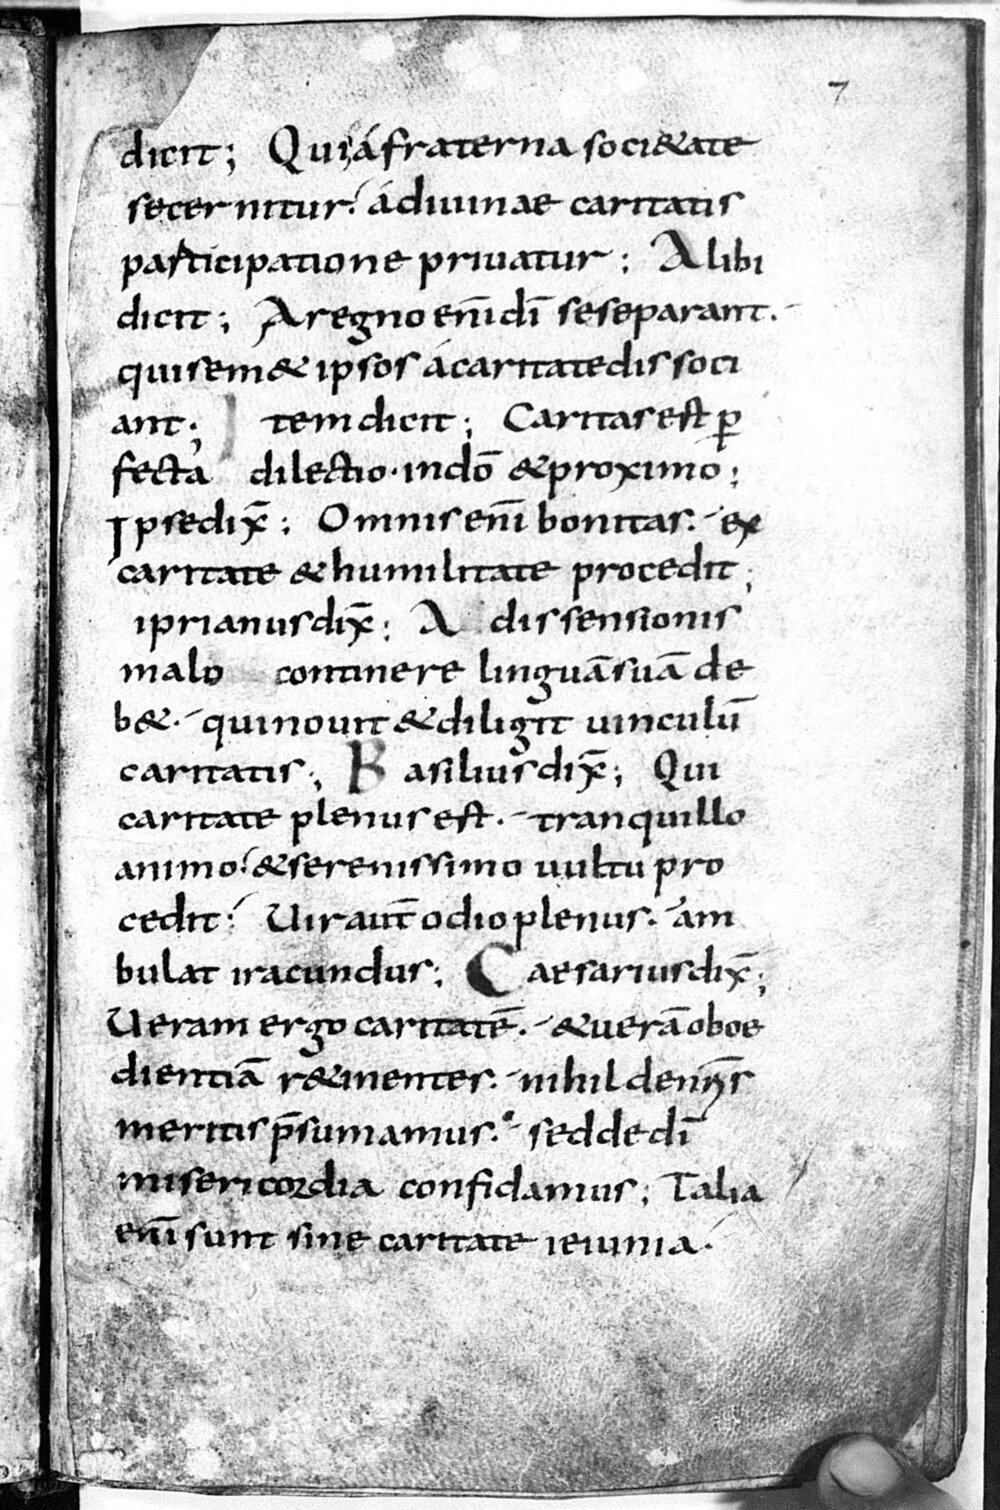 7
dicit; Qui á fraterna soci&ate
secernitur. á diuinae caritatis
participatione priuatur; Alibi
dicit; A regno enī dī se separant.
qui sem& ipsos á caritate dissoci
ant; Item dicit; Caritas est p̄
fecta dilectio. in dō & proximo;
Ipse dix̄; Omnis enī bonitas. ex
caritate & humilitate procedit;
iprianus dix̄; A dissensionis
malo continere linguā suā de
b&. qui nouit & diligit uinculū
caritatis; Basilius dix̄; Qui
caritate plenus est. tranquillo
animo. & serenissimo uultu pro
cedit. Uir aut̄ odio plenus. am
bulat iracundus; Caesarius dix̄;
Ueram ergo caritatē. & uerā oboe
dientiā r&inentes. nihil de nr̄is
meritis p̄sumamus. sed de dī
misericordia confidamus; Talia
enī sunt sine caritate ieiunia.